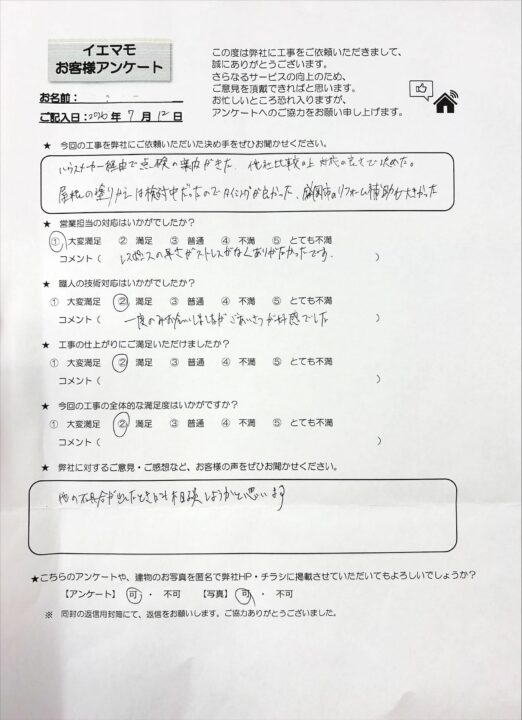 イエマモ
お客様アンケート
この度は弊社に工事をご依頼いただきまして、
誠にありがとうございます。
さらなるサービスの向上のため、
ご意見を頂戴できればと思います。
お忙しいところ恐れ入りますが、
アンケートへのご協力をお願い申し上げます。
お名前:
ご記入日:2026年 7月 12日
★ 今回の工事を弊社にご依頼いただいた決め手をぜひお聞かせください。
ハウスメーカー経由で点検の案内がきた、他社比較の上対応の良さで決めた。
屋根の塗りかえは検討中だったのでタイミングが良かった、盛岡市のリフォーム補助も大きかった
★ 営業担当の対応はいかがでしたか?
① 大変満足 ② 満足 ③ 普通 ④ 不満 ⑤ とても不満
コメント( レスポンスの早さがストレスがなくありがたかったです. )
★ 職人の技術対応はいかがでしたか?
① 大変満足 ② 満足 ③ 普通 ④ 不満 ⑤ とても不満
コメント( 一度のみお会いしましたがごあいさつが好感でした )
★ 工事の仕上がりにご満足いただけましたか?
① 大変満足 ② 満足 ③ 普通 ④ 不満 ⑤ とても不満
コメント( )
★ 今回の工事の全体的な満足度はいかがですか?
① 大変満足 ② 満足 ③ 普通 ④ 不満 ⑤ とても不満
コメント( )
★ 弊社に対するご意見・ご感想など、お客様の声をぜひお聞かせください。
他の不具合が出たときがも相談しようかと思います
★こちらのアンケートや、建物のお写真を匿名で弊社HP・チラシに掲載させていただいてもよろしいでしょうか?
【アンケート】 可 ・ 不可 【写真】 可 ・ 不可
※ 同封の返信用封筒にて、返信をお願いします。ご協力ありがとうございました。